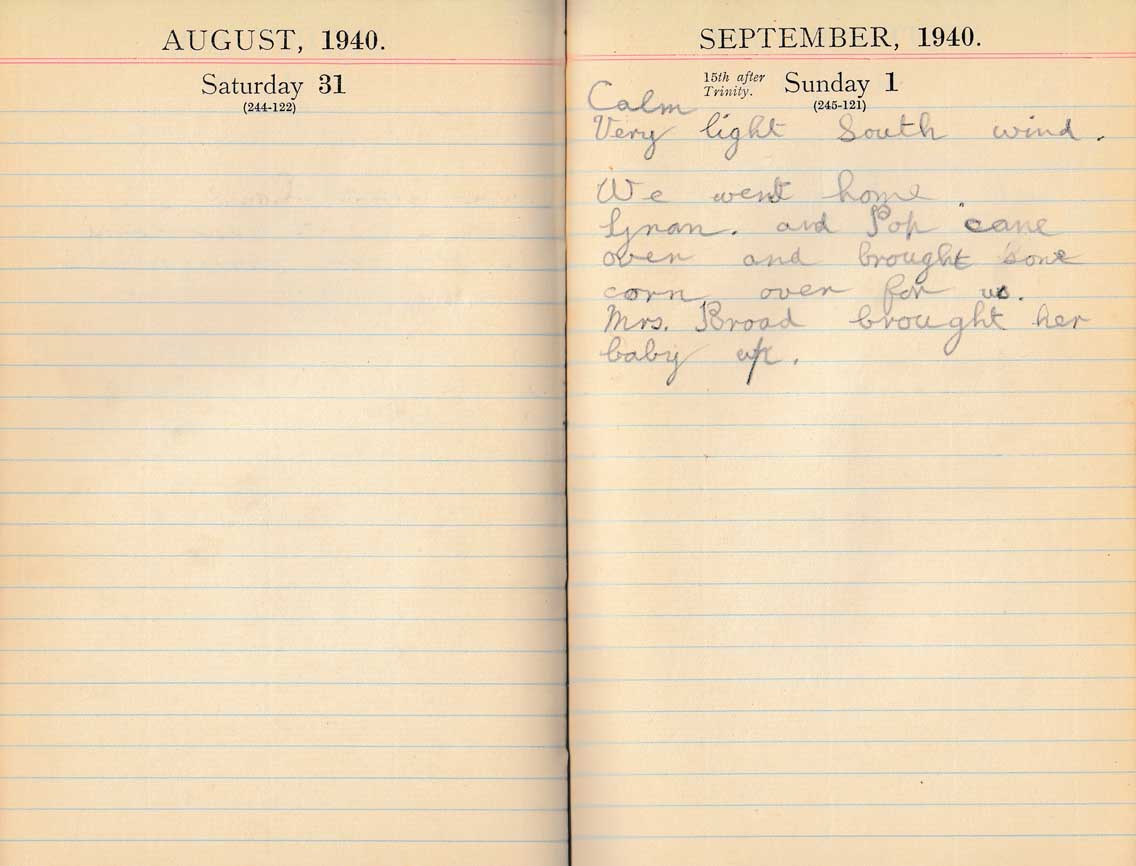 AUGUST, 1940.
Saturday 31
(244-122)
SEPTEMBER, 1940.
15th after
Trinity.
Sunday 1
(245-121)
Calm
Very light South wind.
We went home
Gran. and Pop came
over and brought some
corn over for us.
Mrs. Broad brought her
baby up.